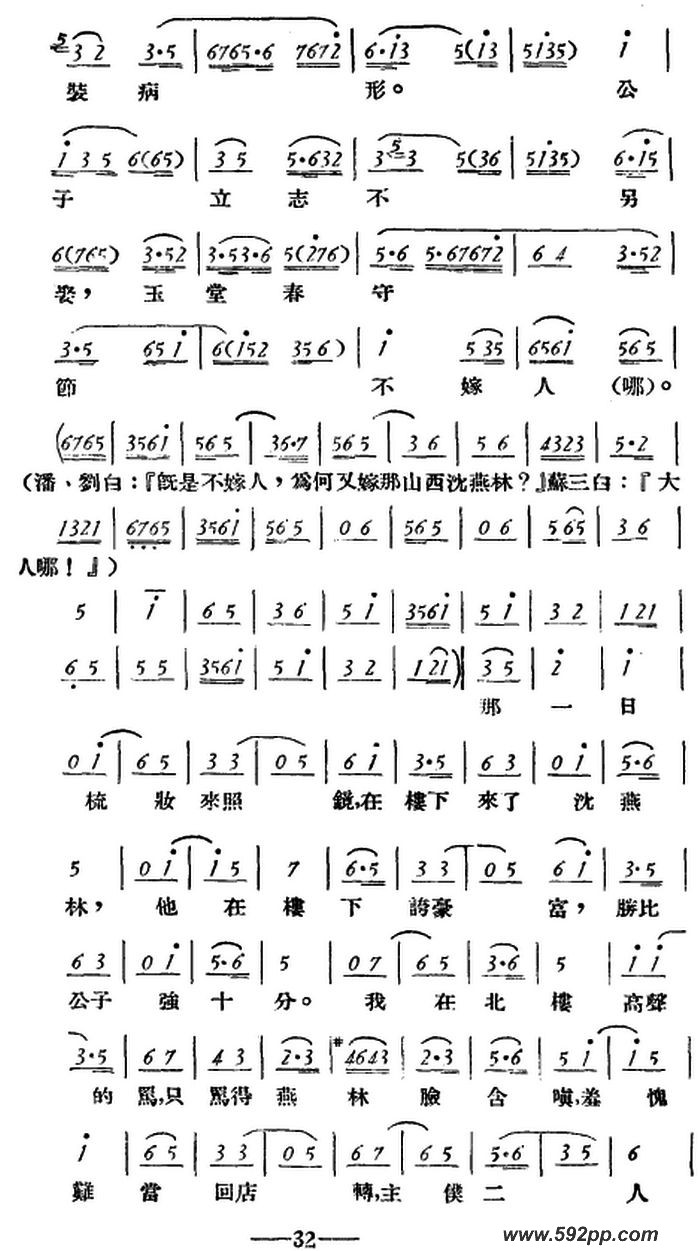 5 3 2 3·5 | 6765·6 7672 | 6·i3 5(i3 | 5i35) i |
裝 病 形。 公
i 3 5 6(65) | 3 5 5·632 | 3 5 3 5(36 | 5i35) 6·i5 |
子 立 志 不 另
6(765) 3·52 | 3·53·6 5(276) | 5·6 5·67672 | 6 4 3·52 |
娶，玉 堂 春 守
3·5 65i | 6(i52 356) | i 535 | 656i 565 |
節 不 嫁 人 (哪)。
(6765 | 356i | 565 | 36·7 | 565 | 36 | 56 | 4323 | 5·2 |
(潘、劉白：『既是不嫁人，爲何又嫁那山西沈燕林？』蘇三白：『大
1321 | 6765 | 356i | 565 | 06 | 565 | 06 | 565 | 36 |
人哪！』)
5 | i | 65 | 36 | 5i | 356i | 5i | 32 | 121 |
65 | 55 | 356i | 5i | 32 | 121) | 35 | 2 | i |
那 一 日
0i | 65 | 33 | 05 | 6i | 3·5 | 63 | 0i | 5·6 |
梳 妝 來照 鏡,在 樓下 來了 沈 燕
5 | 0i | i5 | 7 | 6·5 | 33 | 05 | 6i | 3·5 |
林， 他 在 樓 下 誇豪 富，勝比
63 | 0i | 5·6 | 5 | 07 | 65 | 3·6 | 5 | ii |
公子 強 十 分。 我 在 北 樓 高聲
3·5 | 67 | 43 | 2·3 | #4643 | 2·3 | 5·6 | 5i | i5 |
的 罵,只 罵得 燕 林 臉 含 嗔,羞 愧
i | 65 | 33 | 05 | 67 | 65 | 5·6 | 35 | 6
難 當 回店 轉,主 僕 二 人
—32—
www.592pp.com